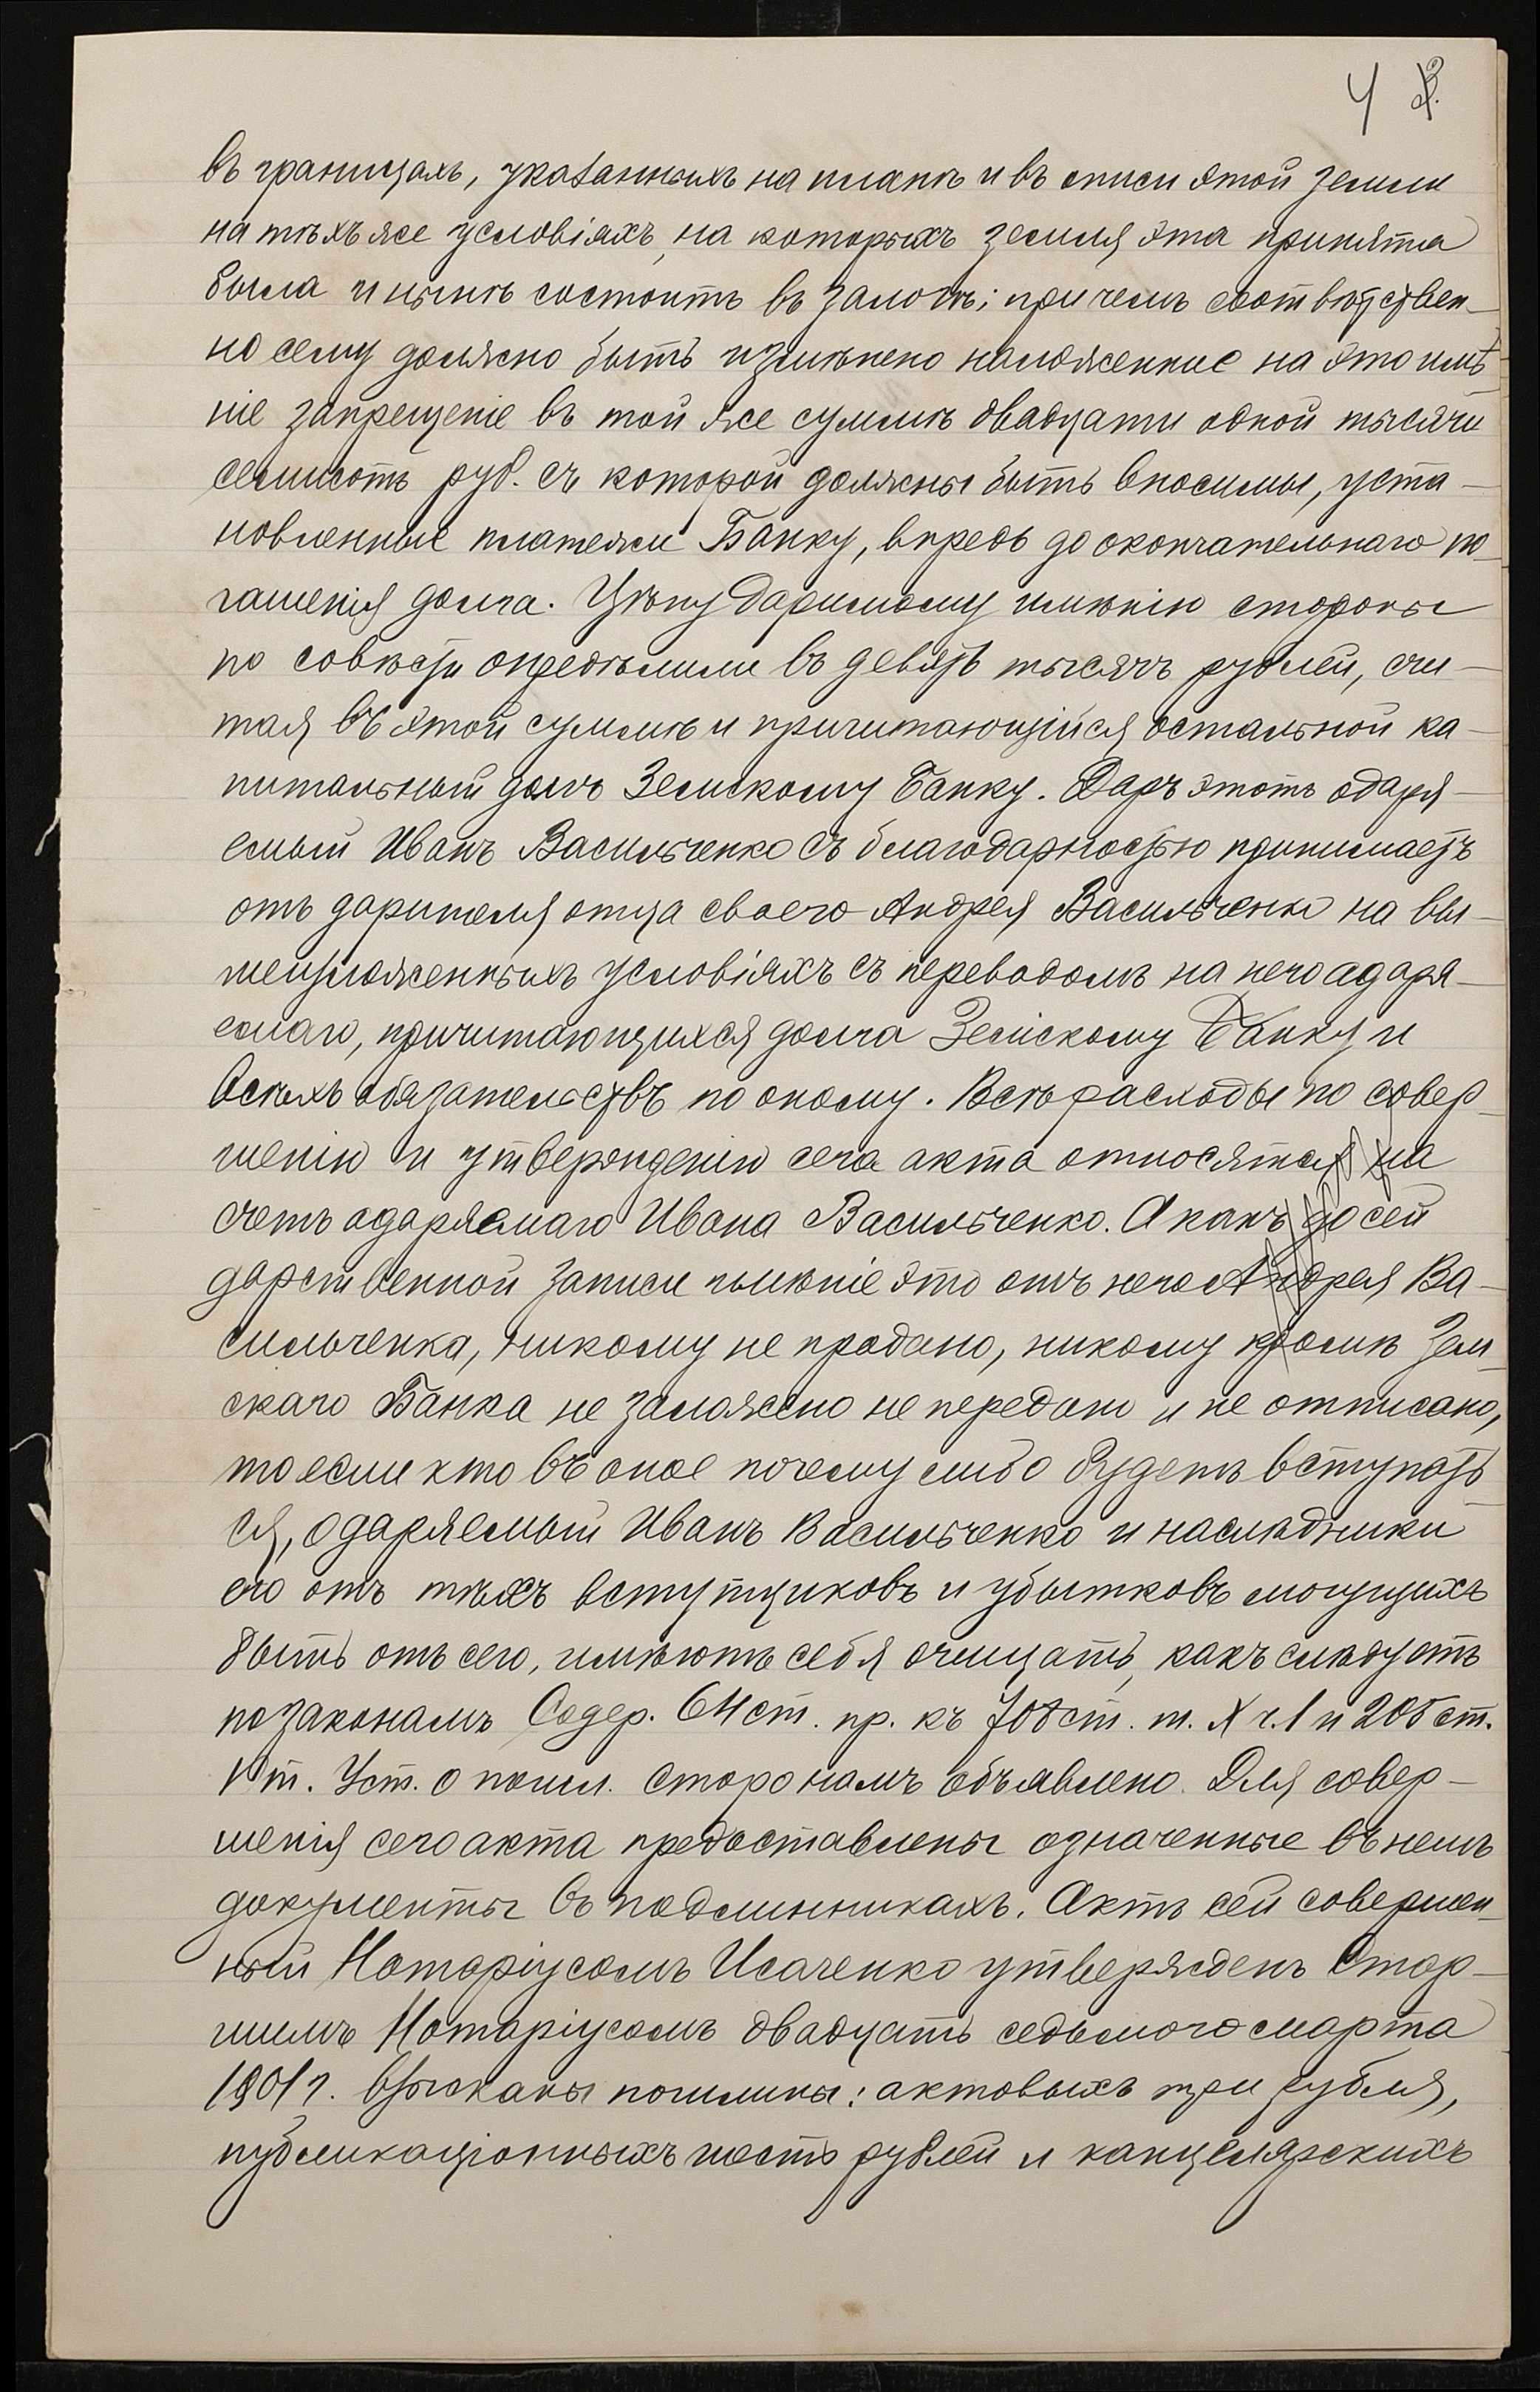 4 3.
въ границахъ, указанныхъ на планѣ и въ описи этой земли
на тѣхъ же условіяхъ, на которыхъ земля эта принята
была и нынѣ состоитъ въ залогѣ; при чемъ соотвѣтствен-
но сему должно быть измѣнено наложенное на это имѣ-
ніе запрещеніе въ той же суммѣ двадцати одной тысячи
семисотъ руб. съ которой должны быть вносимы, уста-
новленные платежи Банку, впредь до окончательнаго по-
гашенія долга. Цѣну даримому имѣнію стороны
по совѣсти опредѣлили въ девять тысячъ рублей, счи-
тая въ этой суммѣ и причитающійся остальной ка-
питальный долгъ Земскому Банку. Даръ этотъ одаря-
емый Иванъ Васильченко съ благодарностью принимаетъ
отъ дарителя отца своего Андрея Васильченко на вы-
шеизложенныхъ условіяхъ съ переводомъ на него одаря-
емаго, причитающихся долга Земскому Банку и
всѣхъ обязательствъ по оному. Всѣ расходы по совер-
шенію и утвержденію сего акта относятся на
счетъ одаряемаго Ивана Васильченко. А какъ до сей
дарственной записи имѣніе это отъ него Андрея Ва-
сильченка, никому не продано, никому кромѣ Зем-
скаго Банка не заложено не передано и не отписано,
то если кто въ оное почему либо будетъ вступать
ся, одаряемый Иванъ Васильченко и наслѣдники
его отъ тѣхъ вступщиковъ и убытковъ могущихъ
быть отъ сего, имѣютъ себя очищать, какъ слѣдуетъ
по законамъ Содер. 64 ст. пр. къ 708 ст. т. X ч. 1 и 205 ст.
V т. Уст. о пошл. сторонамъ объявлено. Для совер-
шенія сего акта предоставлены означенные въ немъ
документы въ подлинникахъ. Актъ сей совершен-
ный Нотаріусомъ Исаченко утвержденъ Стар-
шимъ Нотаріусомъ двадцать седьмого марта
1901 г. взысканы пошлины: актовыхъ три рубля,
публикаціонныхъ шесть рублей и канцелярскихъ